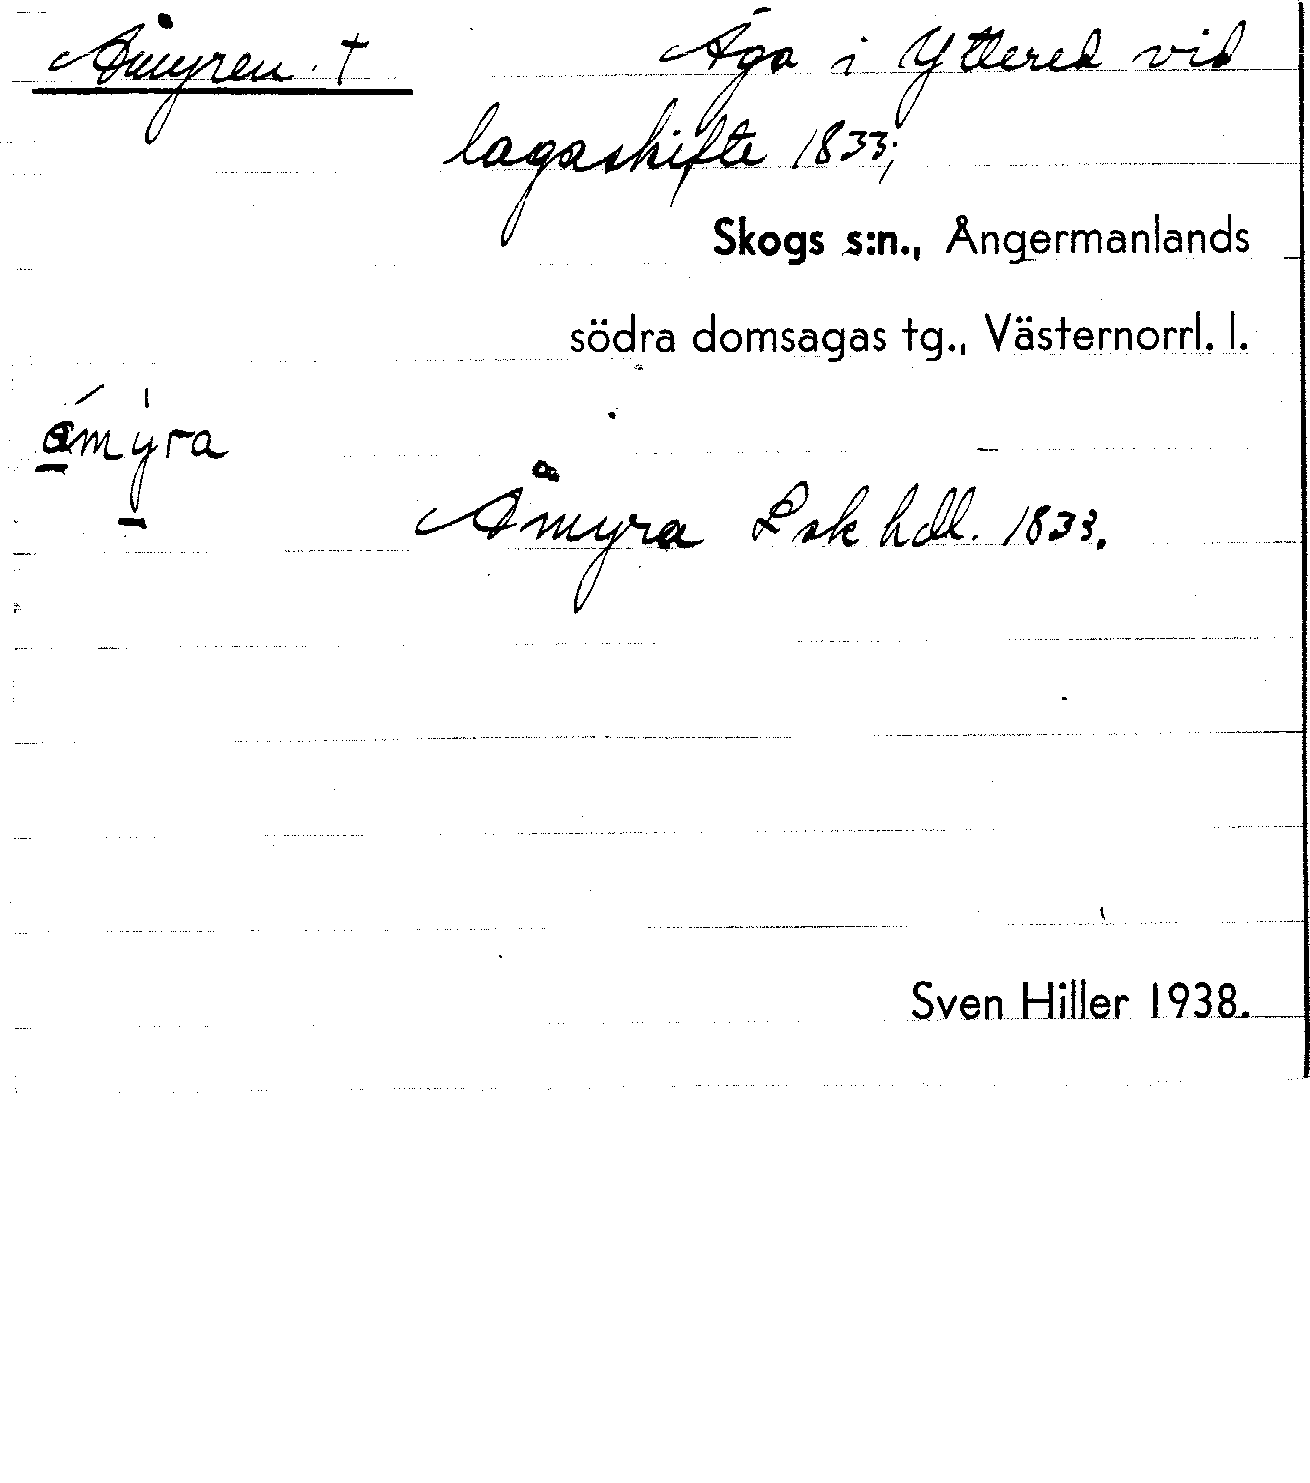 Åmyren. † Äga i Yttered vid
lagaskifte 1833;
Skogs s:n., Ångermanlands
södra domsagas tg., Västernorrl. l.
åmyra
Åmyra Lsk hdl. 1833.
Sven Hiller 1938.